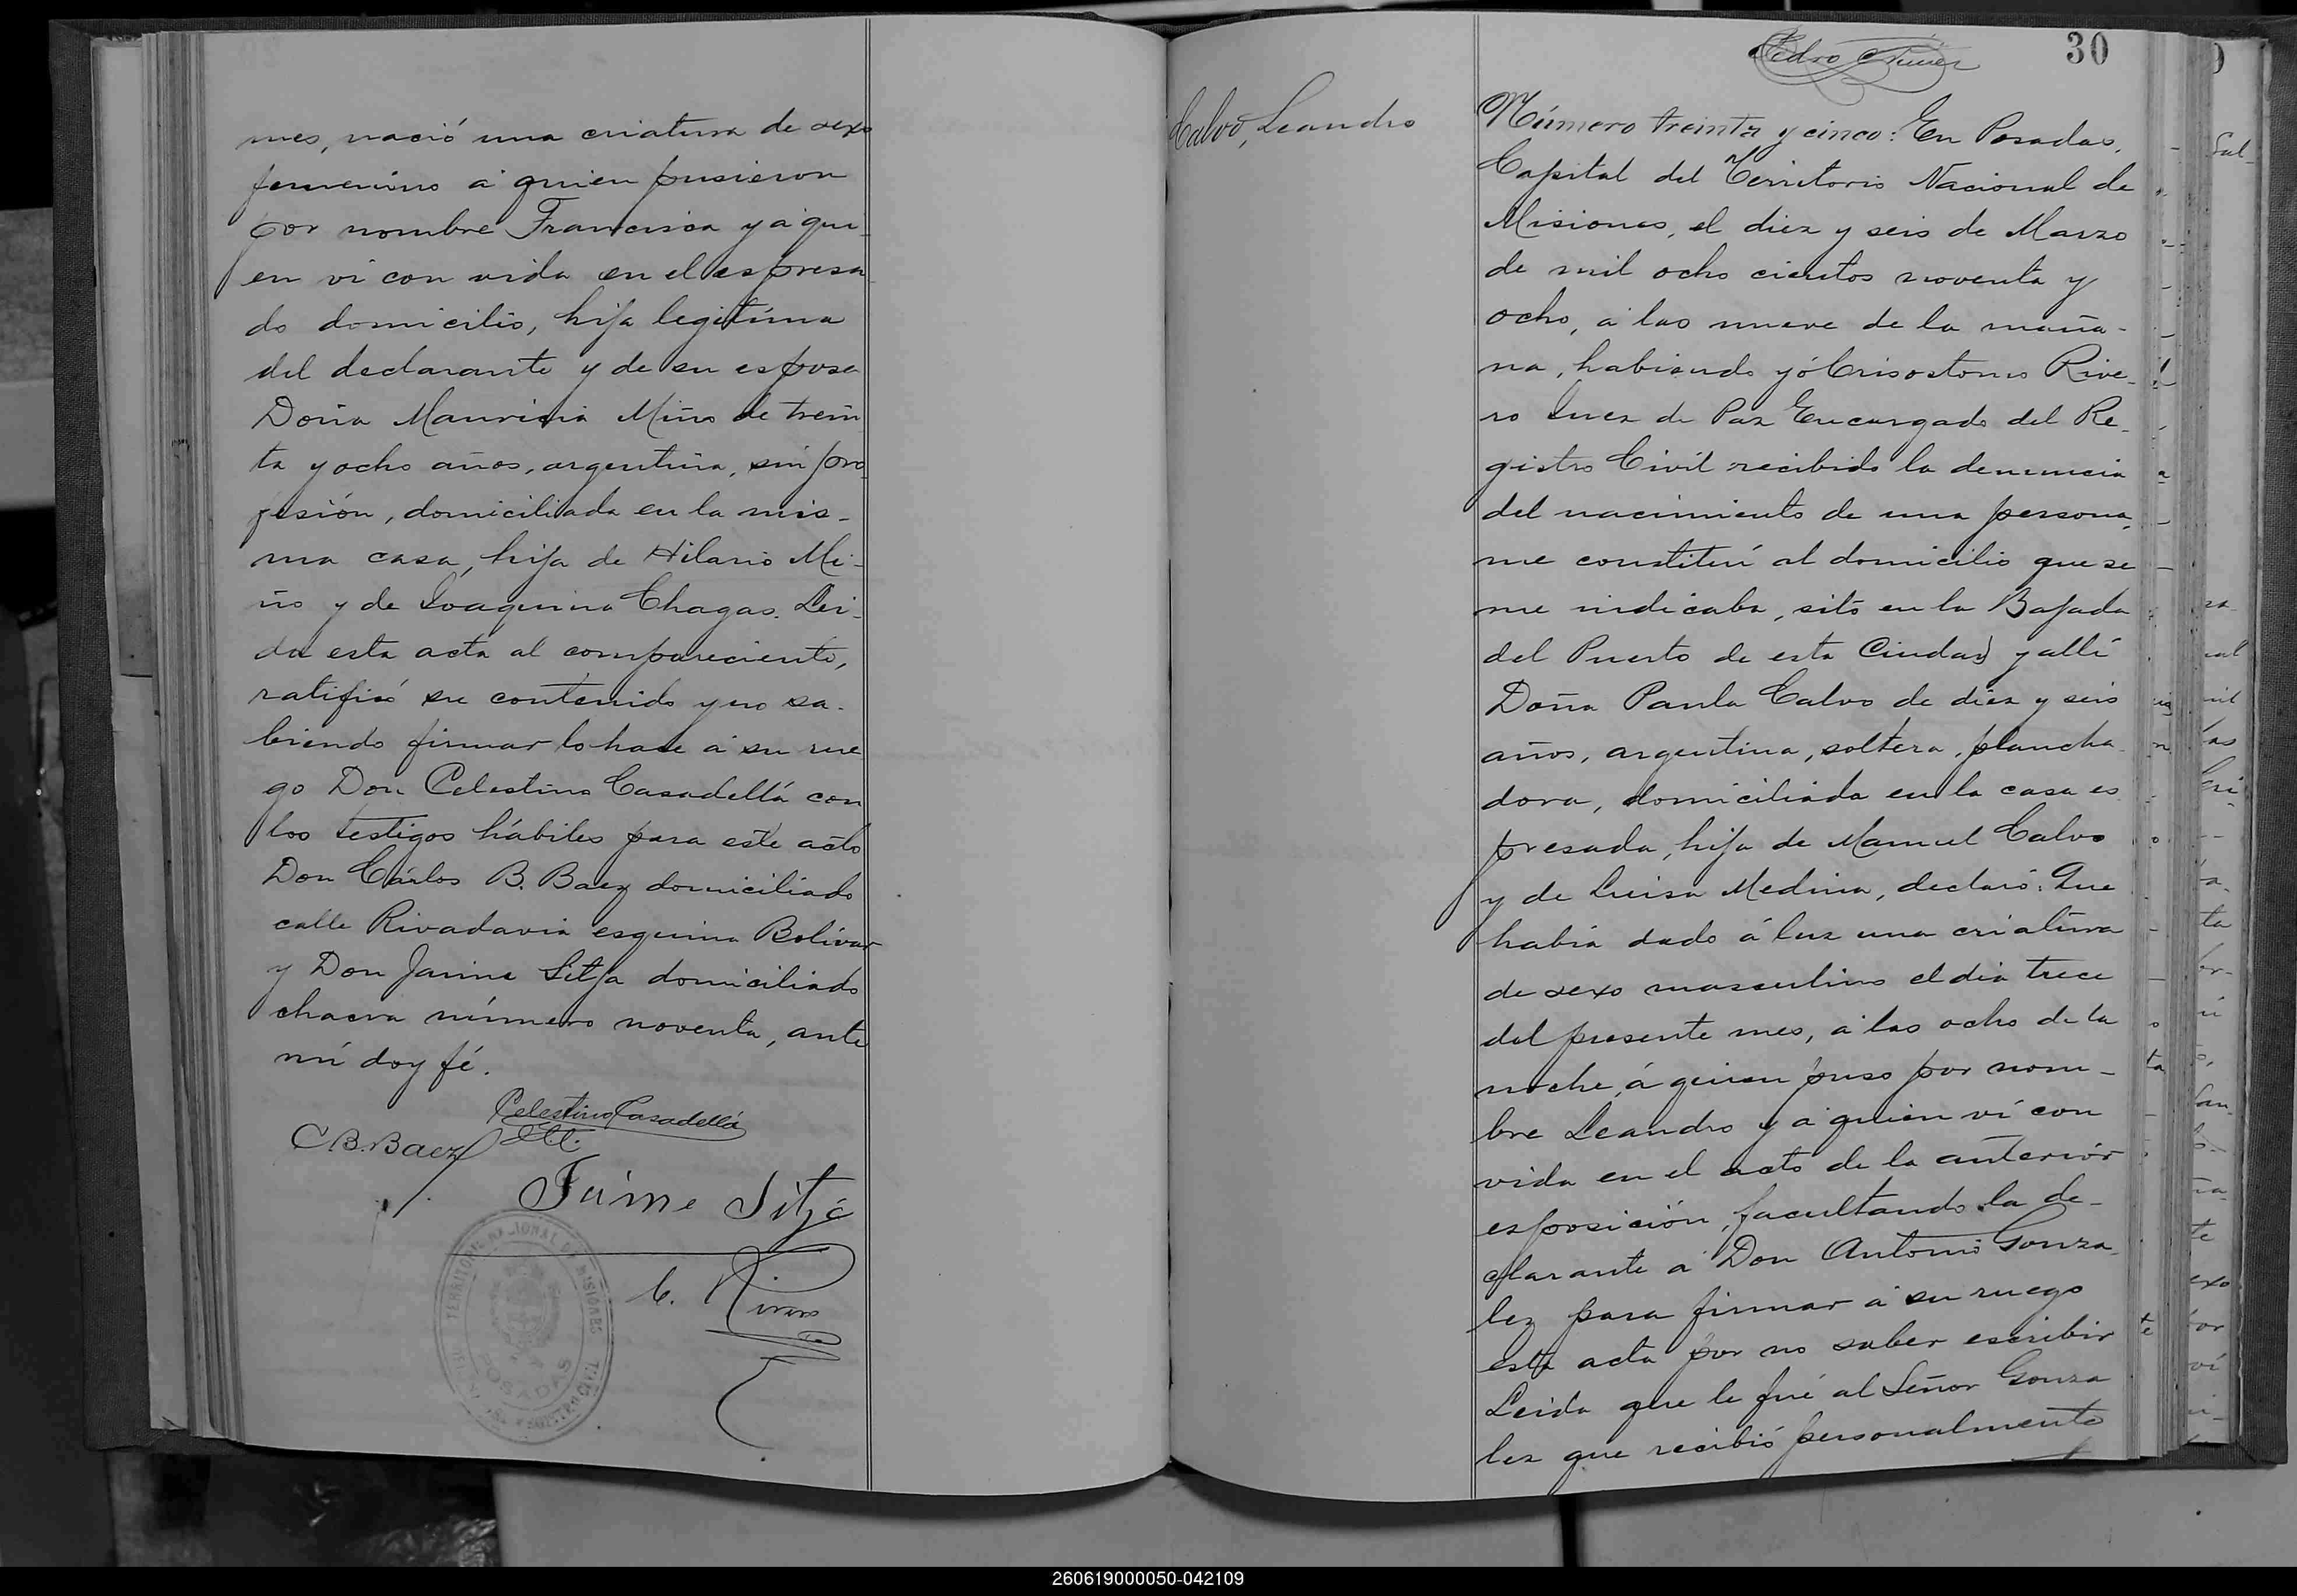 mes, nació una criatura de sexo
femenino á quien pusieron
por nombre Francisca y á qui-
en ví con vida en el espresa
do domicilio, hija legitima
del declarante y de su esposa
Doña Mauricia Miño de trein
ta y ocho años, argentina, sin pro
fesión, domiciliada en la mis-
ma casa, hija de Hilario Mi-
ño y de Joaquina Chagas. Lei-
da esta acta al compareciente,
ratificó su contenido y no sa-
biendo firmar lo hace á su rue
go Don Celestino Casadellá con
los testigos hábiles para este acto
Don Cárlos B. Baez domiciliado
calle Rivadavia esquina Bolívar
y Don Jaime Sitja domiciliado
chacra número noventa, ante
mí doy fé.
Celestino Casadellá
C B. Baez
Jaime Sitjá
C. Rivero
TERRITORIO NACIONAL DE MISIONES
POSADAS
REGISTRO CIVIL
30
Calvo, Leandro
Número treinta y cinco: En Posadas,
Capital del Territorio Nacional de
Misiones, el diez y seis de Marzo
de mil ocho cientos noventa y
ocho, á las nueve de la maña-
na, habiendo yó Crisostomo Rive-
ro Juez de Paz Encargado del Re-
gistro Civil recibido la denuncia
del nacimiento de una persona,
me constituí al domicilio que se
me indicaba, sito en la Bajada
del Puerto de esta Ciudad y allí
Doña Paula Calvo de diez y seis
años, argentina, soltera, plancha-
dora, domiciliada en la casa es
presada, hija de Manuel Calvo
y de Luisa Medina, declaró: Que
había dado á luz una criatura
de sexo masculino el dia trece
del presente mes, á las ocho de la
noche, á quien puso por nom-
bre Leandro y á quien ví con
vida en el acto de la anterior
esposición, facultando la de-
clarante á Don Antonio Gonza-
lez para firmar á su ruego
esta acta por no saber escribir
Leida que le fué al Señor Gonza
lez que recibió personalmente
260619000050-042109